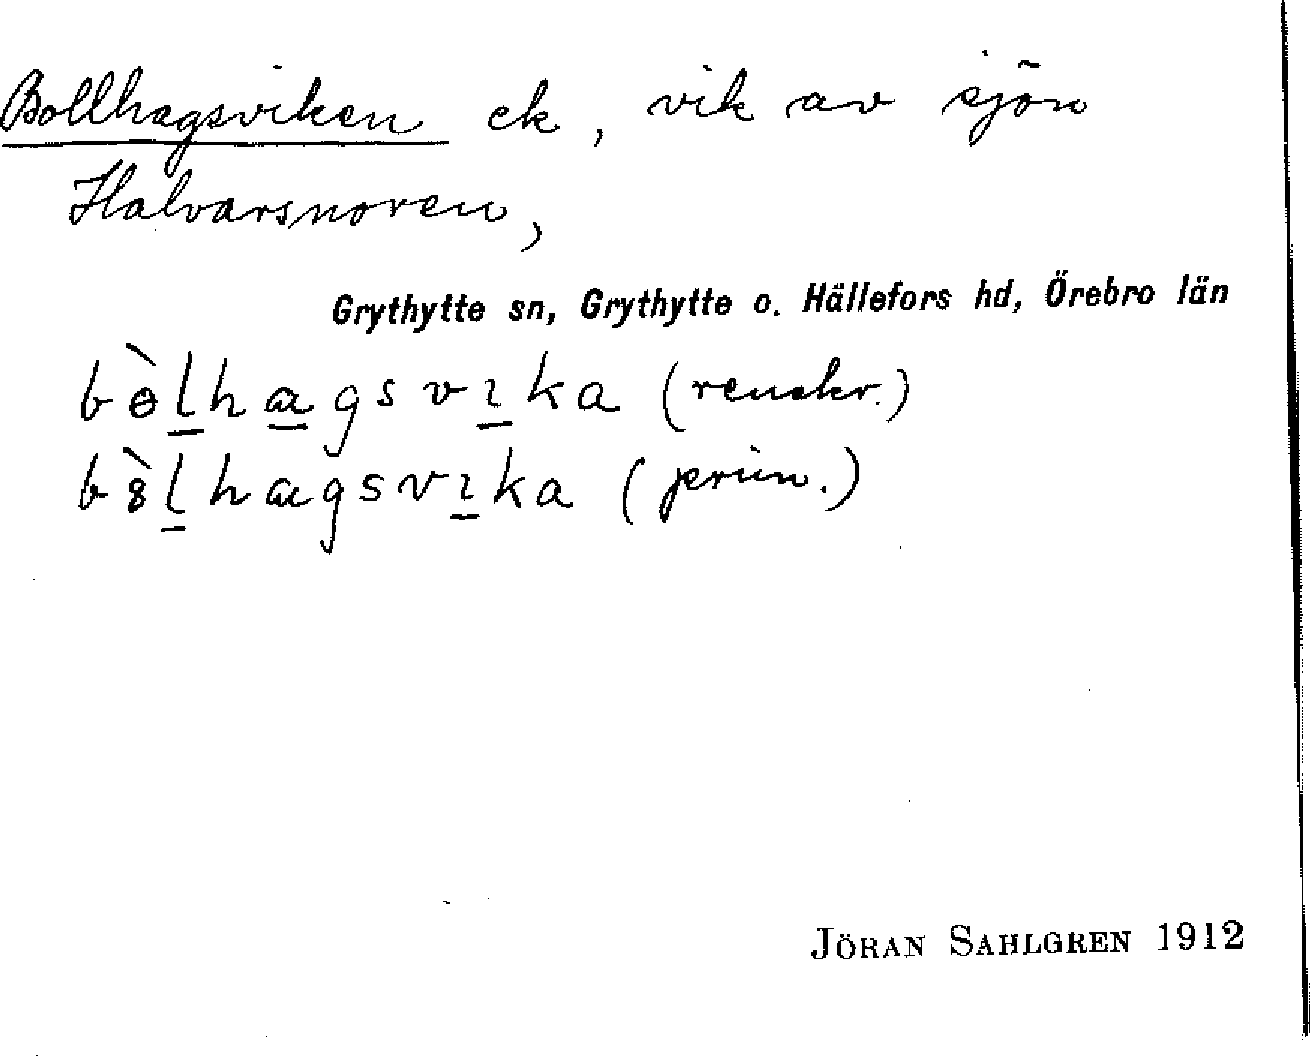 Bollhagsviken ek, vik av sjön
Halvarsnoren,
Grythytte sn, Grythytte o. Hällefors hd, Örebro län
bɵ̀l̲ha̲gsvı̲ka (renskr.)
b8̀l̲hagsvı̲ka (prim.)
JÖRAN SAHLGREN 1912